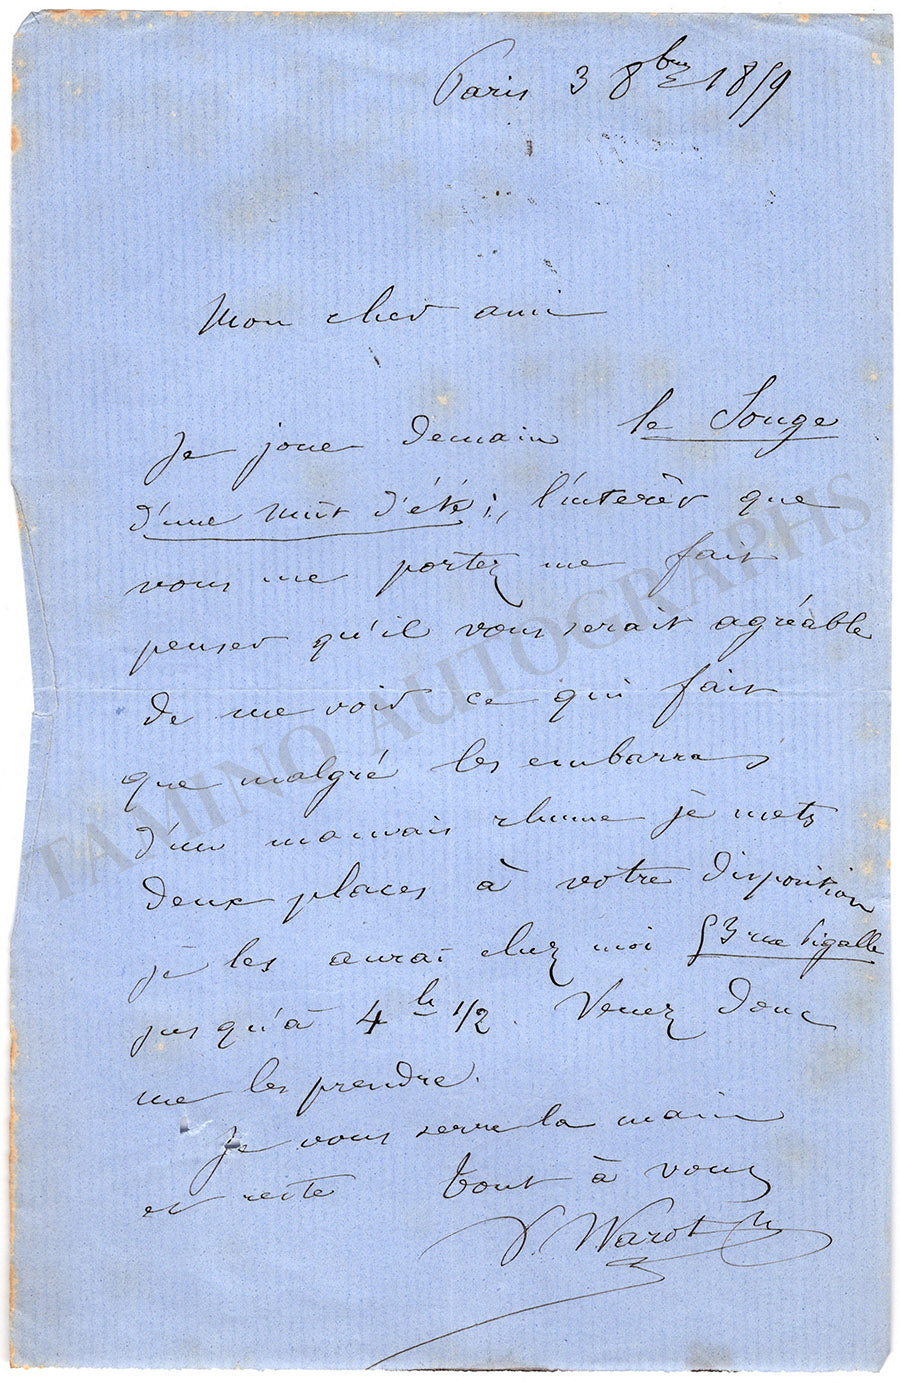 Paris 3 8bre 1859
Mon cher ami
Je joue demain le Songe
d'une nuit d'été; l'interêt que
vous me portez me fait
penser qu'il vous serait agréable
de me voir ce qui fait
que malgré les embarras
d'un mauvais rhume je mets
deux places à votre disposition
je les aurai chez moi 53 rue Pigalle
jusqu'à 4 h 1/2. Venez donc
me les prendre.
Je vous serre la main
et reste tout à vous
V. Warot
TAMINO AUTOGRAPHS